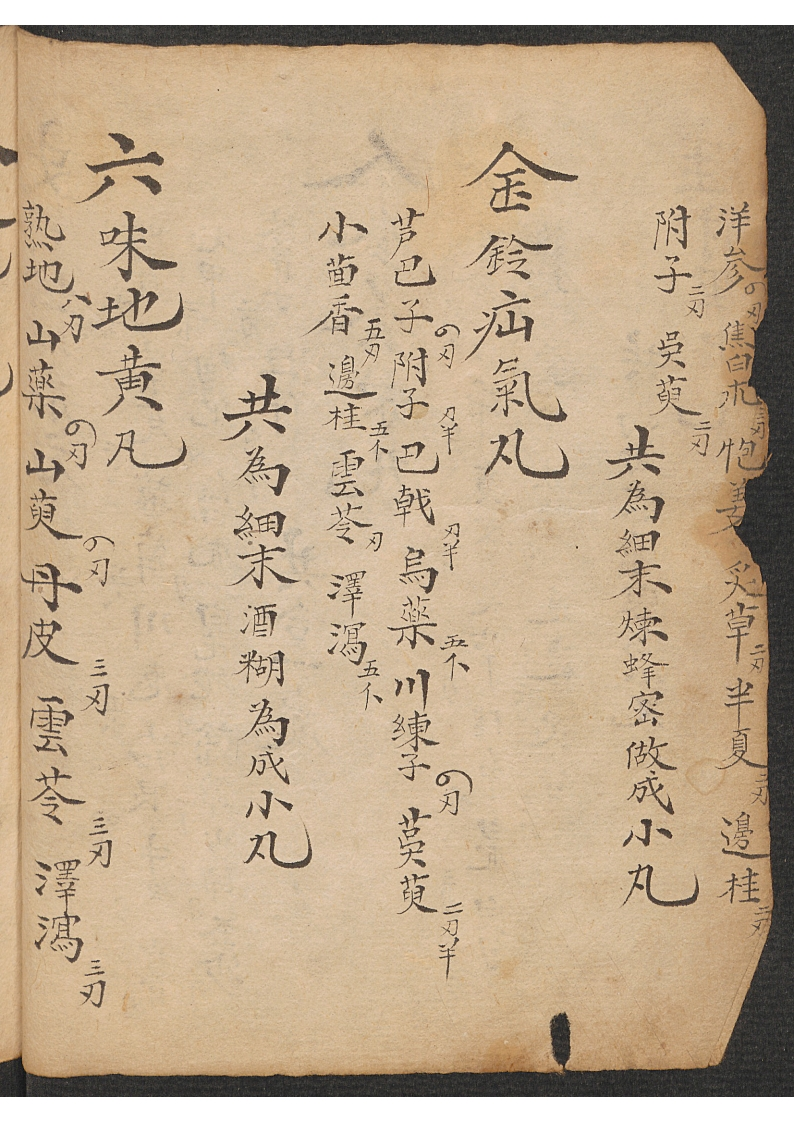 洋参の刃焦白朮三刃炮姜炙草二刃半夏二刃邊桂二刃
附子三刃吳萸二刃
共為細末煉蜂密做成小丸
金鈴疝氣丸
芦巴子の刃附子刃半巴戟刃半烏藥五下川練子の刃萸萸二刃半
小茴香五刃邊桂五下雲苓刃澤瀉五下
共為細末酒糊為成小丸
六味地黄丸
熟地八刃山藥の刃山萸の刃丹皮三刃雲苓三刃澤瀉三刃